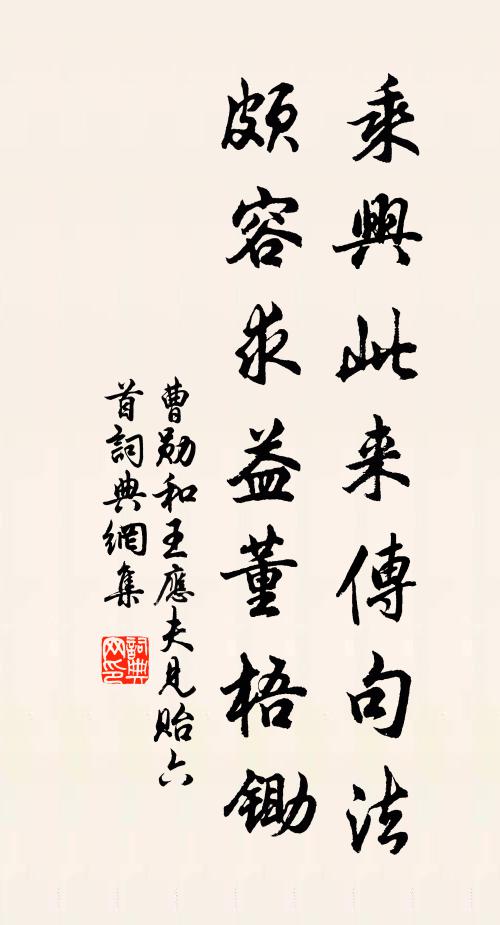 乘興此来傳句法
頗容求益董梧鋤
曹勛和王應夫見貽六
首詞典網集
詞典网印